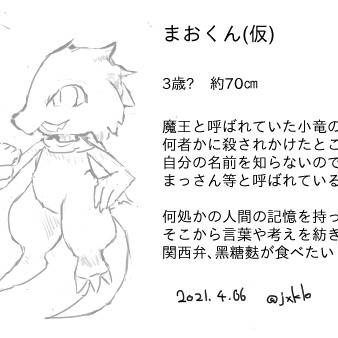 まおくん(仮)
3歳?　約70㎝
魔王と呼ばれていた小竜の
何者かに殺されかけたとこ
自分の名前を知らないので
まっさん等と呼ばれている
何処かの人間の記憶を持っ
そこから言葉や考えを紡ぎ
関西弁、黒糖麩が食べたい
2021.4.06 @jxklo